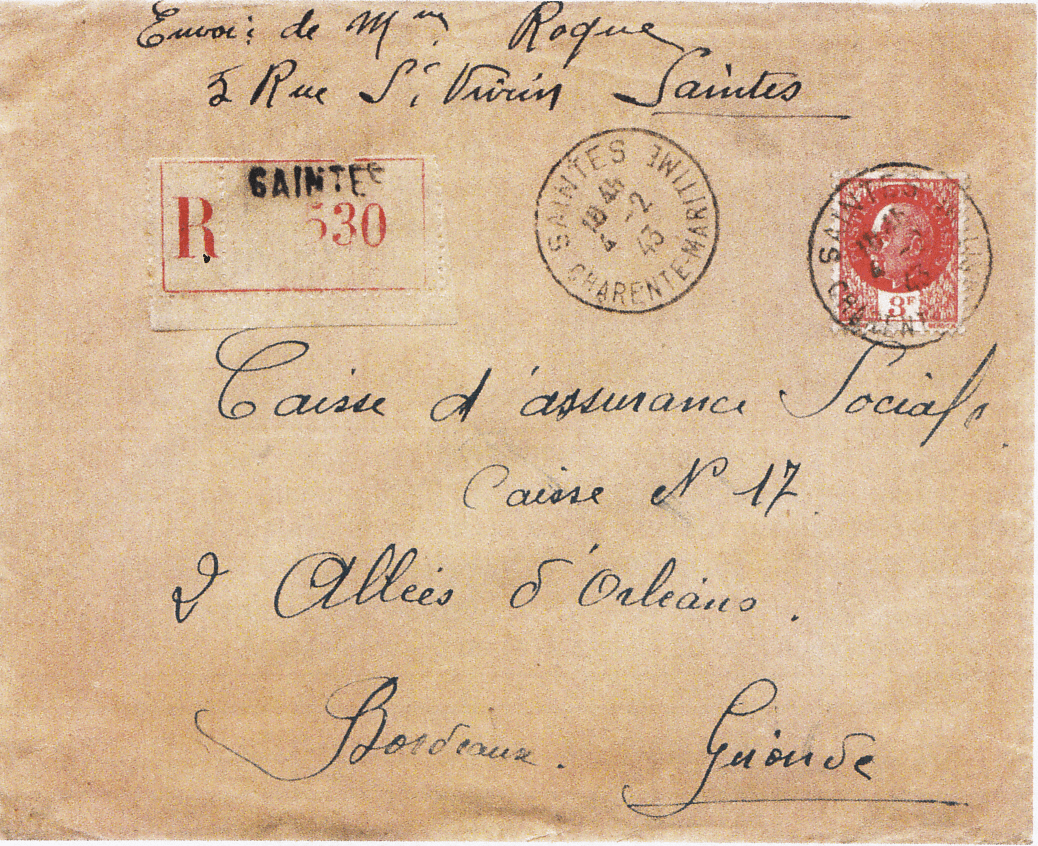 Envoi de Mme Roque
5 Rue St Vivien Saintes
SAINTES
R 530
SAINTES CHARENTE-MARITIME
18 45
4 -2
43
SAINTES
3F
Caisse d'assurance Sociale
Caisse N 17
2 Allées d'Orléans.
Bordeaux. Gironde